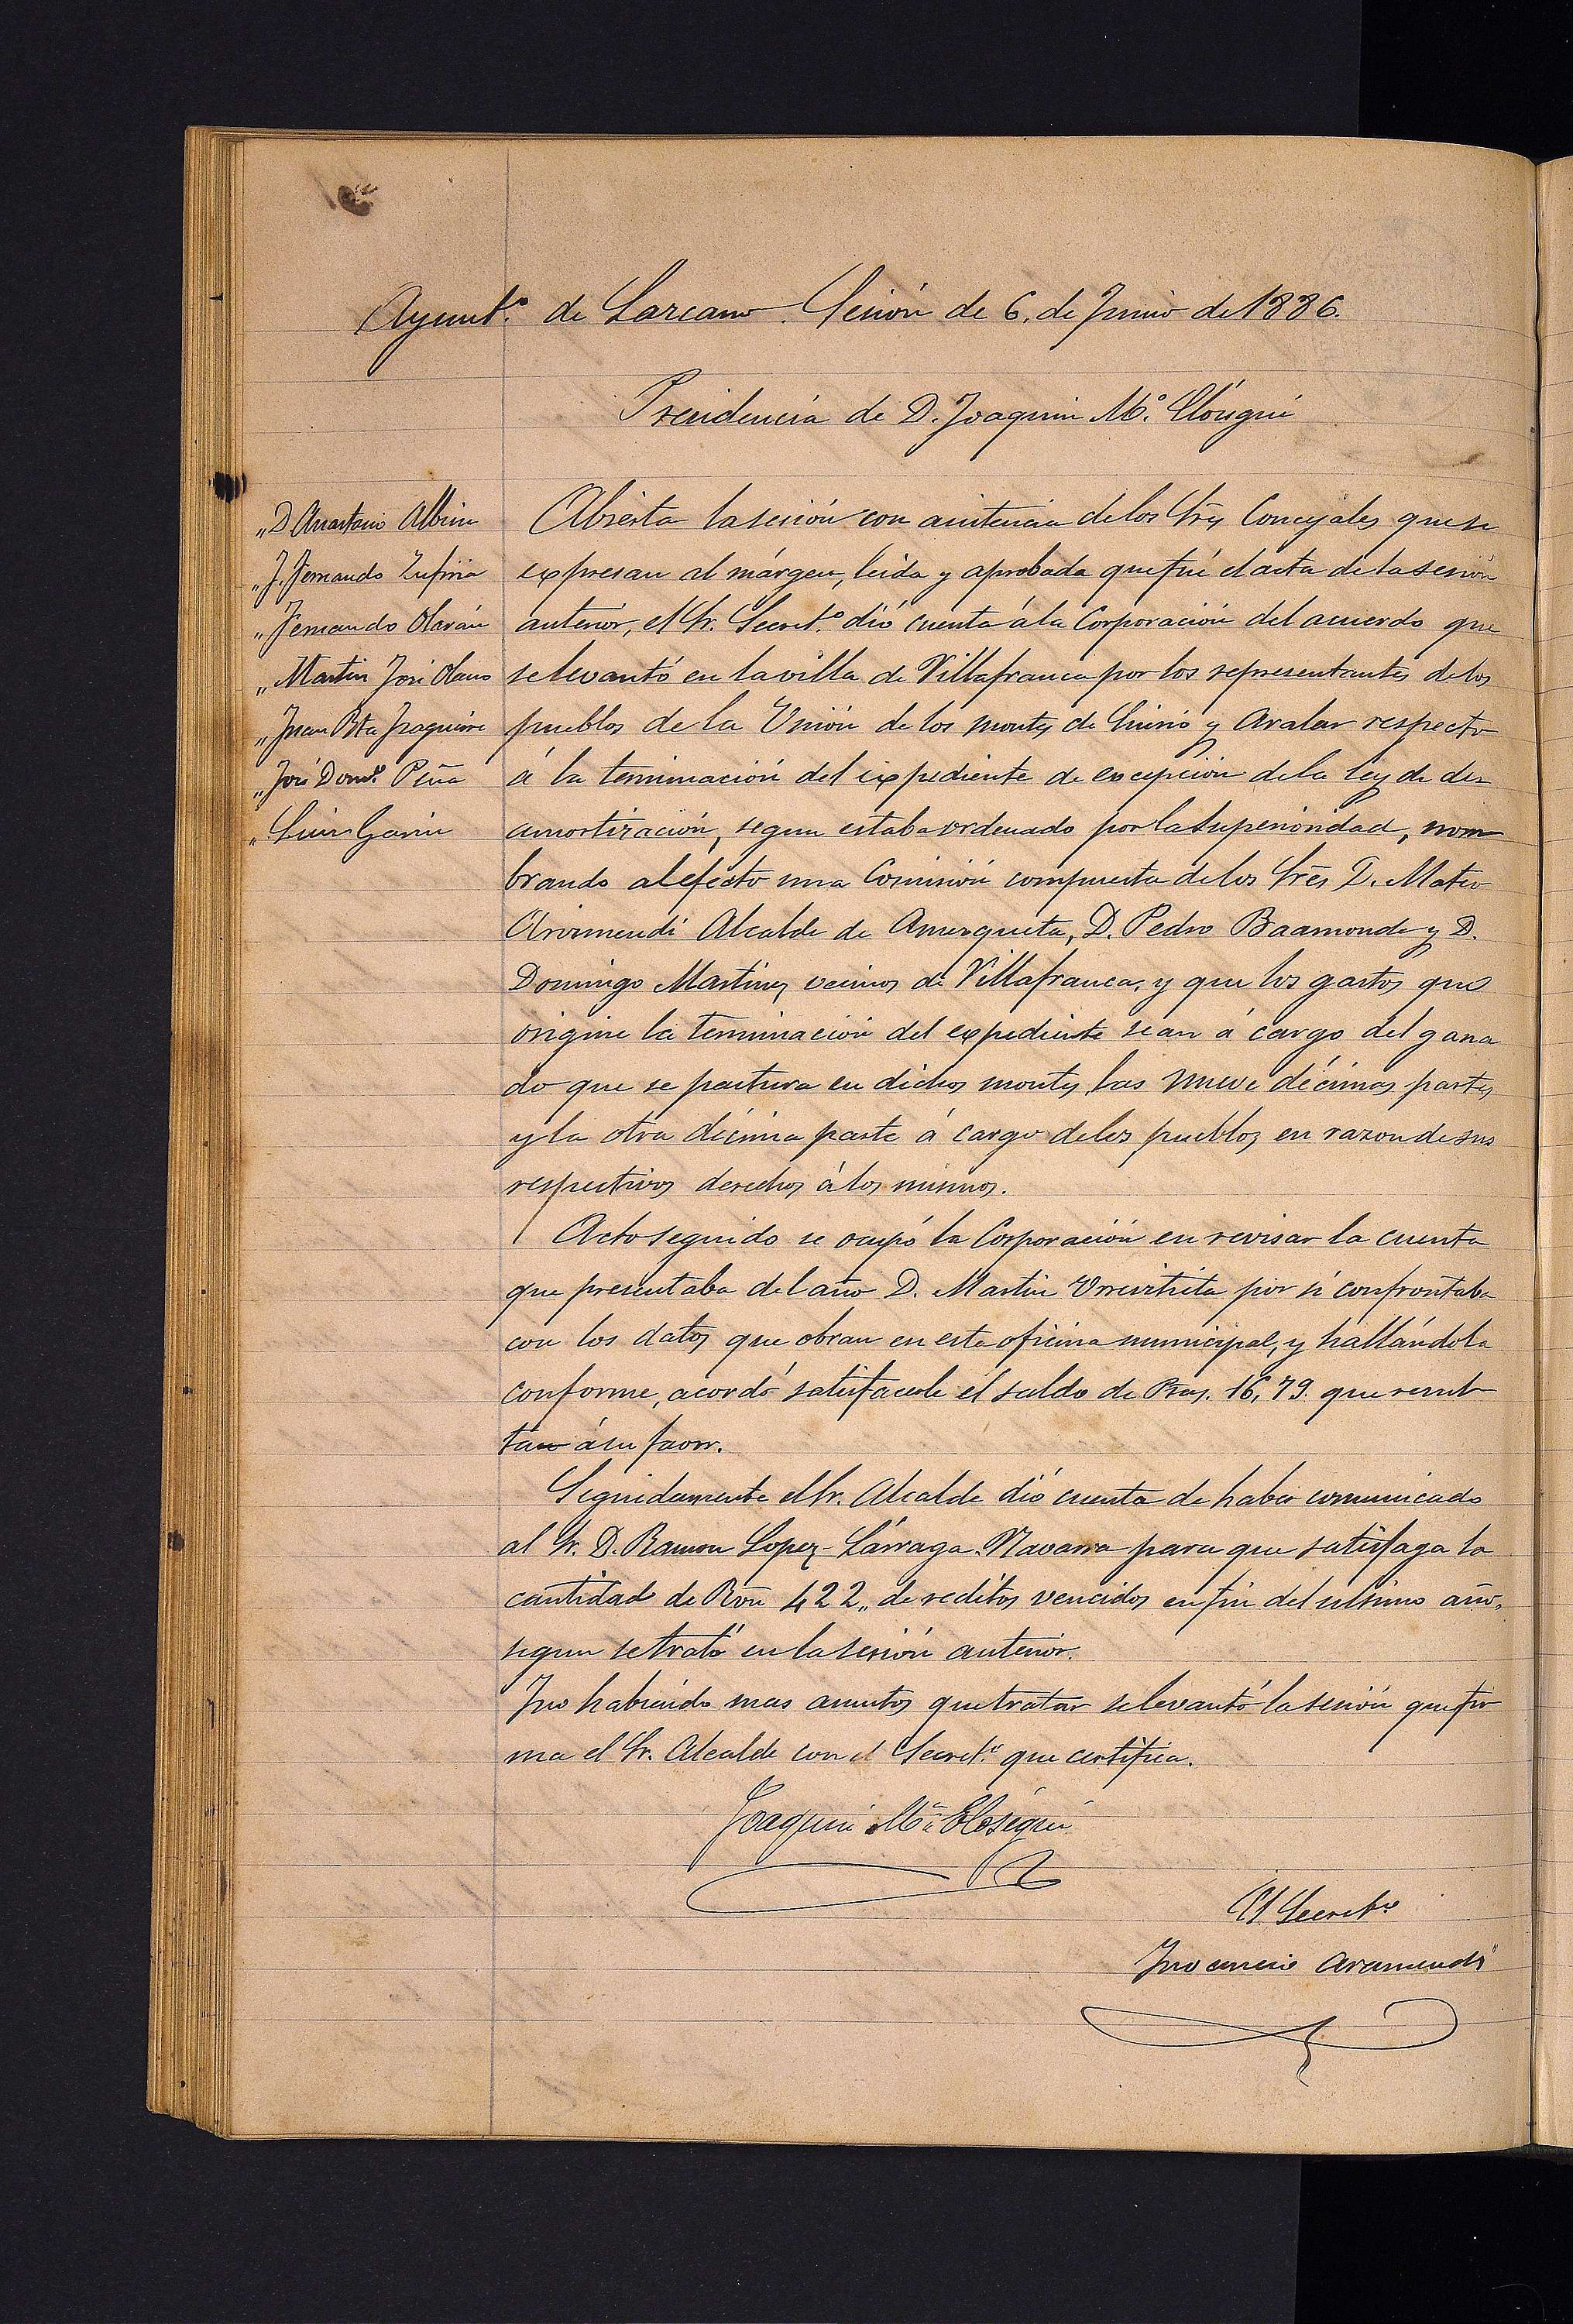 Ayunt.º de Lazcano. Sesión de 6. de Junio de 1886.
Presidencia de D. Joaquin M.ª Elósegui
„ D Anastasio Albisu
„ J. Fernando Zufiria
„ Fernando Olarán
„ Martin José Olano
„ Juan Bta Izaguirre
„ José Dom.º Peña
„ Luis Garin
Abierta la sesión con asistencia de los Sres Concejales que se
expresan al márgen, leida y aprobada que fué el acta de la sesión
anterior, el Sr. Secret.º dió cuenta á la Corporación del acuerdo que
se levantó en la villa de Villafranca por los representantes de los
pueblos de la Unión de los montes de Enirio y Aralar respecto
á la terminación del expediente de escepción de la ley de des
amortización, segun estaba ordenado por la Superioridad, nom
brando al efecto una Comisión compuesta de los Sres D. Mateo
Arozmendi Alcalde de Amezqueta, D. Pedro Baamonde y D.
Domingo Martinez vecinos de Villafranca, y que los gastos que
origine la terminación del expediente sean á cargo del gana
do que se pastura en dichos montes, las nueve décimas partes
y la otra décima parte á cargo de los pueblos en razon de sus
respectivos derechos á los mismos.
Acto seguido se ocupó la Corporación en revisar la cuenta
que presentaba del año D. Martin Urreiztieta por si confrontaba
con los datos que obran en esta oficina municipal, y hallándola
conforme, acordó satisfacerle el saldo de Ptas. 16,79. que resul
tan á su favor.
Seguidamente el Sr. Alcalde dió cuenta de haber comunicado
al Sr. D. Ramon Lopez-Lárraga-Navarra para que satisfaga la
cantidad de Rvn 422„ de reditos vencidos en fin del ultimo año,
segun se trató en la sesión anterior.
Y no habiendo mas asuntos que tratar se levantó la sesión que fir
ma el Sr. Alcalde con el Secret.º que certifica.
Joaquin M.ª Elósegui
El Secretº
Inocencio Aramendi